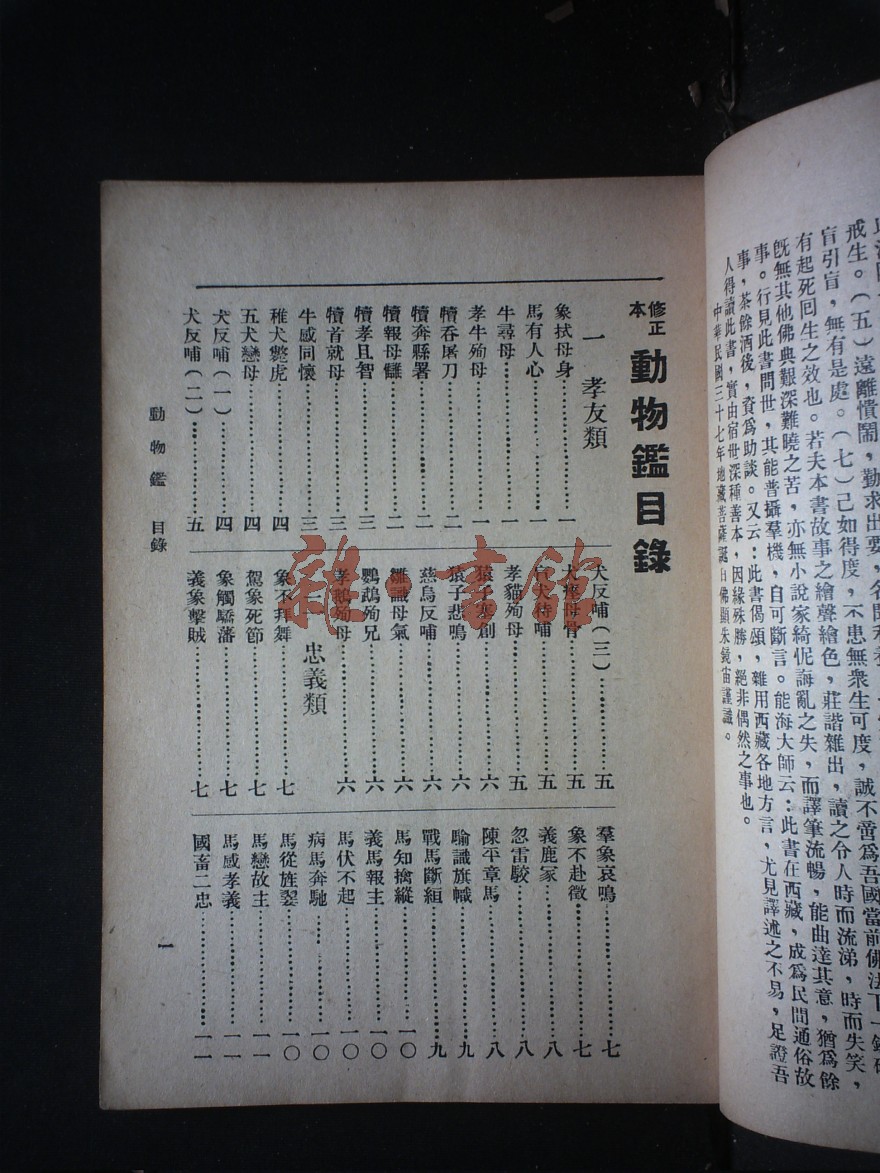 戒生。（五）遠離憒鬧，勤求出要，
盲引盲，無有是處。（七）己如得度，不患無衆生可度，誠不啻爲吾國當前佛法下一
有起死回生之效也。若夫本書故事之繪聲繪色，莊諧雜出，讀之令人時而流涕，時而失笑，
旣無其他佛典艱深難曉之苦，亦無小說家綺伲誨亂之失，而譯筆流暢，能曲達其意，猶爲餘
事。行見此書問世，其能普攝羣機，自可斷言。能海大師云：此書在西藏，成爲民間通俗故
事，茶餘酒後，資爲助談。又云：此書偈頌，雜用西藏各地方言，尤見譯述之不易，足證吾
人得讀此書，實由宿世深種善本，因緣殊勝，絕非偶然之事也。
中華民國三十七年地藏菩薩誕日佛顯朱鏡宙謹識。
修正本 動物鑑目錄
一 孝友類
象拭母身……一
馬有人心……一
牛尋母……一
孝牛殉母……一
犢吞屠刀……二
犢奔縣署……二
犢報母讎……二
犢孝且智……三
犢首就母……三
牛感同懷……三
稚犬斃虎……四
五犬戀母……四
犬反哺（一）……四
犬反哺（二）……五
犬反哺（三）……五
犬瘞母骨……五
盲犬待哺……五
孝貓殉母……五
猿子塞創……六
猿子悲鳴……六
慈烏反哺……六
雛識母氣……六
鸚鵡殉兄……六
孝鵝殉母……六
二 忠義類
象不拜舞……七
駕象死節……七
象觸驕藩……七
義象擊賊……七
羣象哀鳴……七
象不赴徵……七
義鹿冢……八
忽雷駮……八
陳平章馬……八
喻識旗幟……九
戰馬斷絙……九
馬知擒縱……一〇
義馬報主……一〇
馬伏不起……一〇
病馬奔馳……一〇
馬從旌翣……一〇
馬戀故主……一一
馬感孝義……一一
國畜二忠……一一
動物鑑 目錄
一
雜·書館